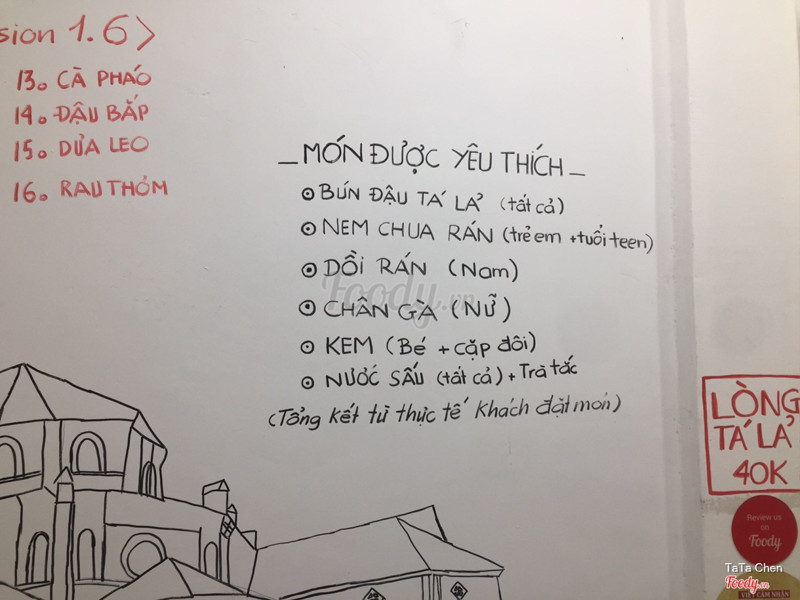 sion 1.6>
13. CÀ PHÁO
14. ĐẬU BẮP
15. DƯA LEO
16. RAU THƠM
_MÓN ĐƯỢC YÊU THÍCH_
BÚN ĐẬU TÁ LẢ (tất cả)
NEM CHUA RÁN (trẻ em + tuổi teen)
DỒI RÁN (Nam)
CHÂN GÀ (NỮ)
KEM (Bé + cặp đôi)
NƯỚC SẤU (tất cả) + Trà tắc
(Tổng kết từ thực tế khách đặt món)
Foody.vn
LÒNG
TÁ LẢ
40K
Review us
on
Foody
TaTa Chen
Foody.vn
VIẾT CẢM NHẬN